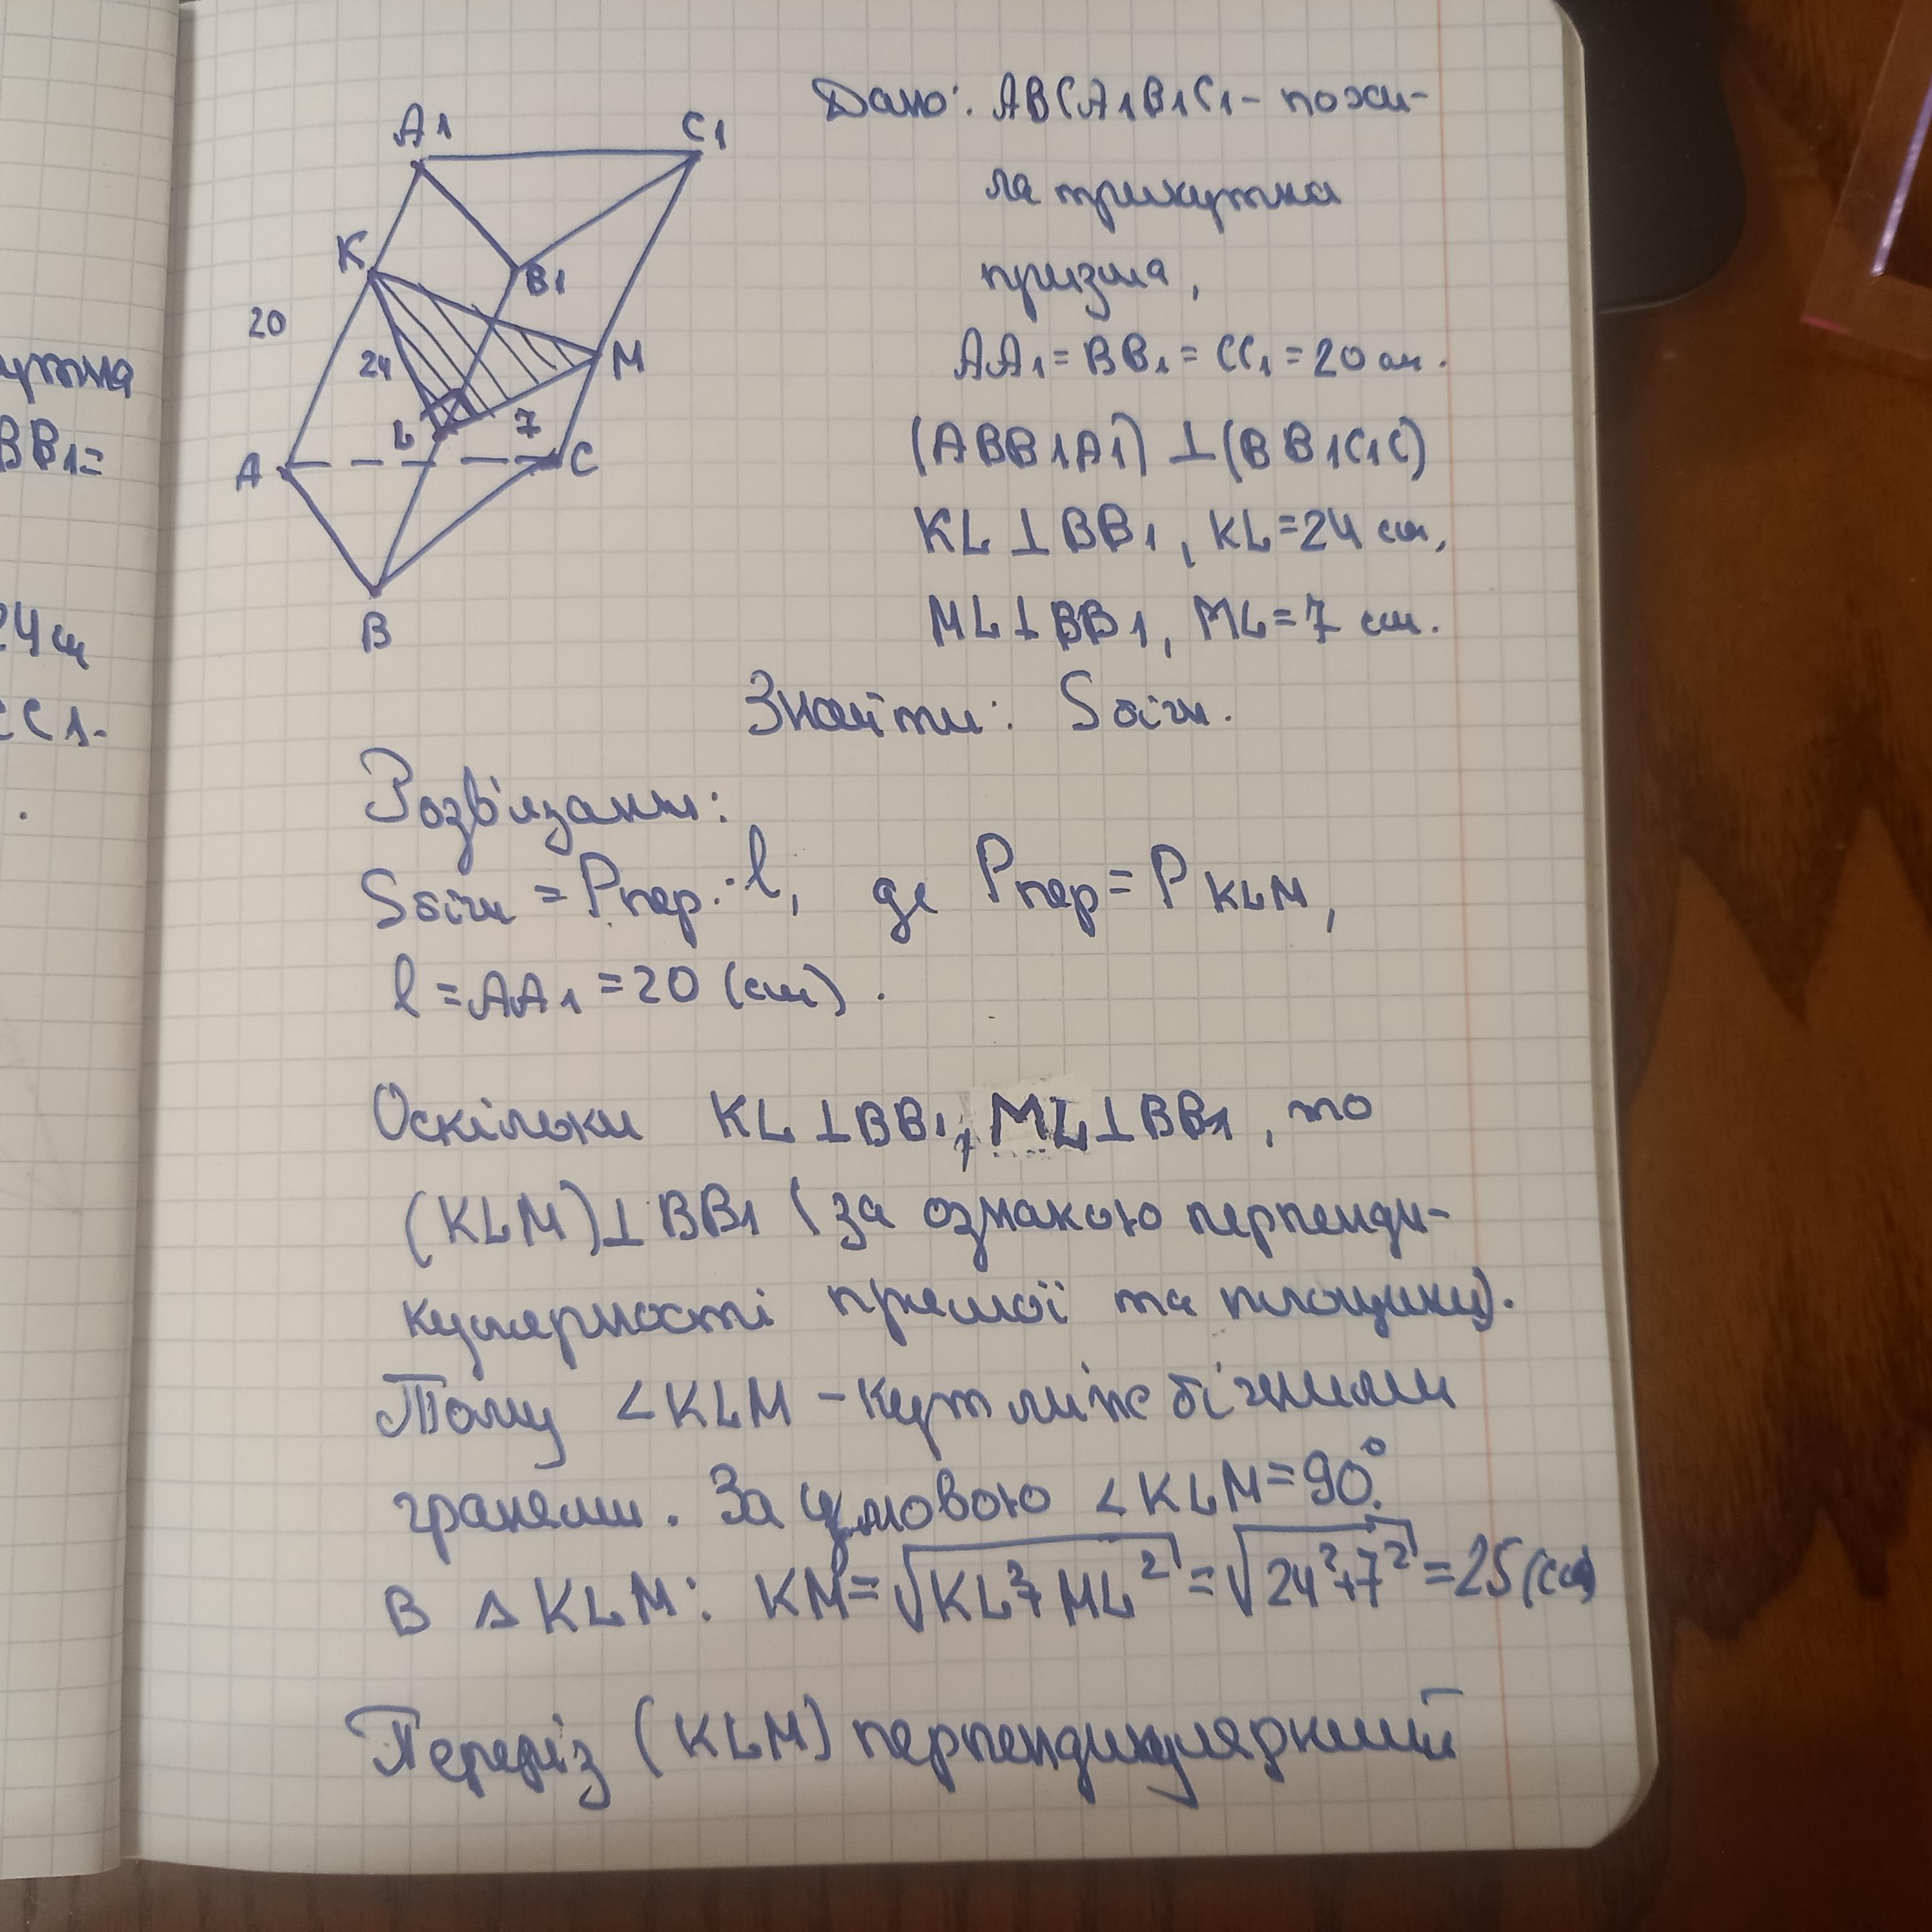 утна
BB1=
24 см
CC1-
.
A1
C1
K
B1
20
24
M
L
7
A
C
B
Дано: ABCA1B1C1 - похи-
ла трикутна
призма,
AA1 = BB1 = CC1 = 20 см.
(ABB1A1) ⊥ (BB1C1C)
KL ⊥ BB1, KL = 24 см,
ML ⊥ BB1, ML = 7 см.
Знайти: Sбічн.
Розв'язання:
Sбічн = Pпер · l, де Pпер = P KLM,
l = AA1 = 20 (см).
Оскільки KL ⊥ BB1, ML ⊥ BB1, то
(KLM) ⊥ BB1 (за ознакою перпенди-
кулярності прямої та площини).
Тому ∠KLM - кут між бічними
гранями. За умовою ∠KLM = 90°.
В △KLM: KM = √KL²+ML² = √24²+7² = 25 (см)
Переріз (KLM) перпендикулярний